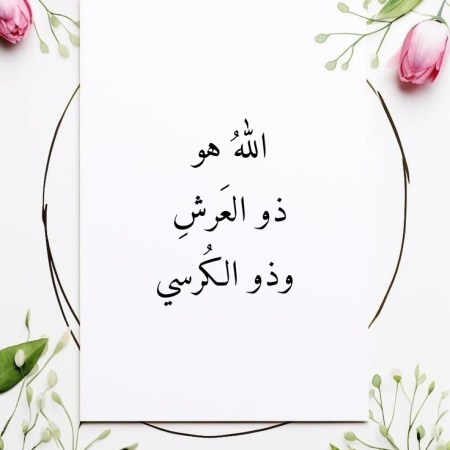 اللهُ هو
ذو العَرشِ
وذو الكُرسي